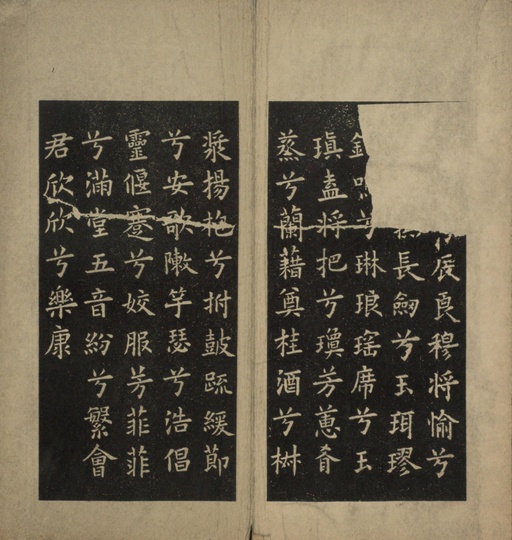 辰良穆將愉兮
長劒兮玉珥璆
兮琳琅瑤席兮玉
瑱盍將把兮瓊芳蕙肴
蒸兮蘭藉奠桂酒兮椒
漿揚枹兮拊鼓疏緩節
兮安歌敶竽瑟兮浩倡
靈偃蹇兮姣服芳菲菲
兮滿堂五音紛兮繁會
君欣欣兮樂康